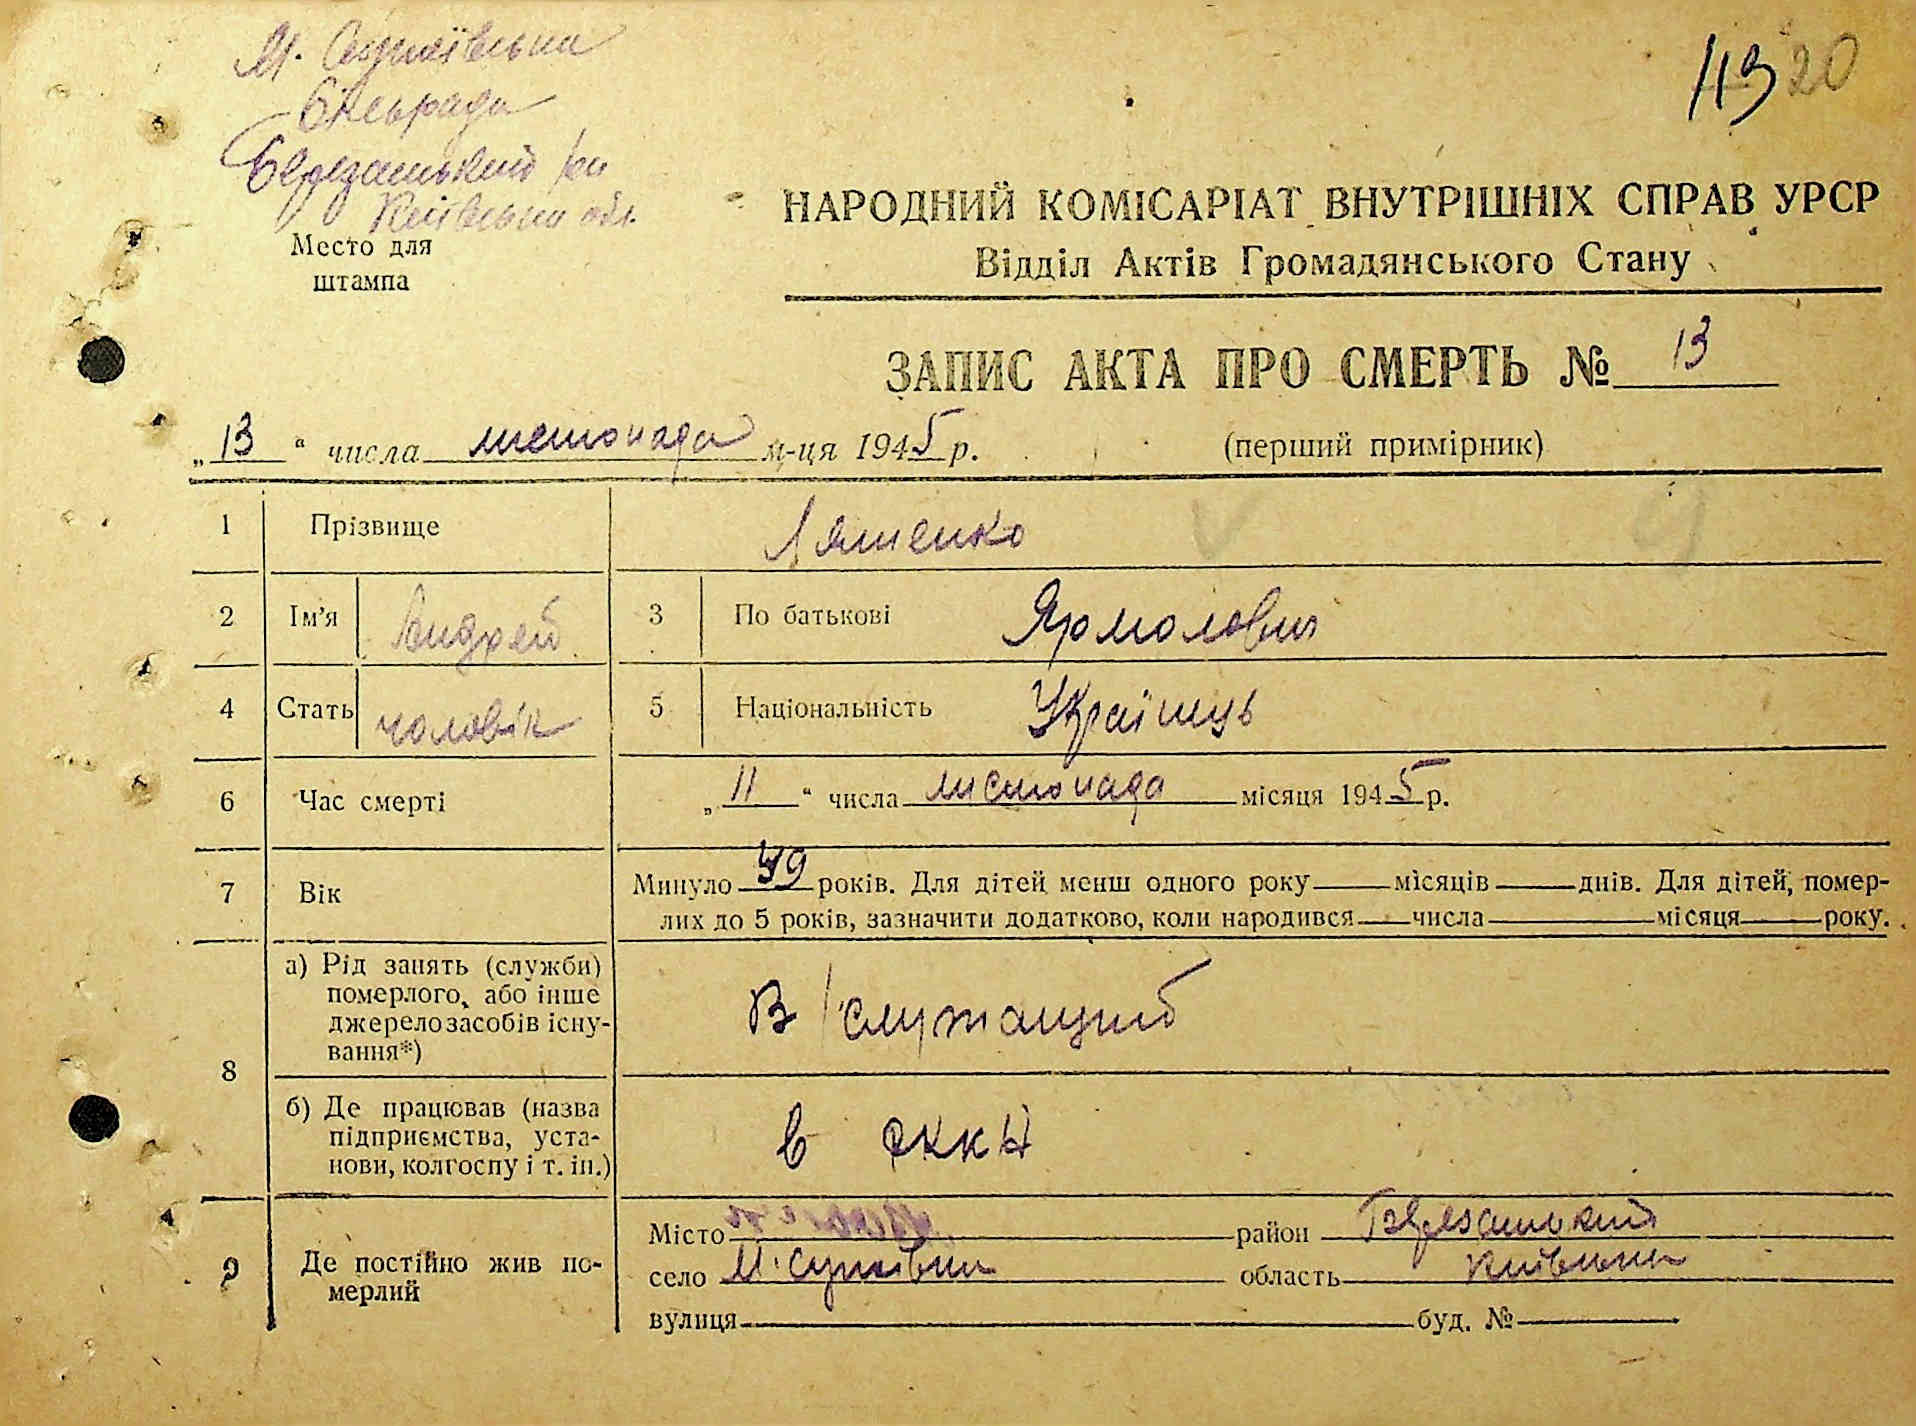 М. Супоївська
Сільрада
Березанський р-н
Київська обл.
119 20
Место для
штампа
НАРОДНИЙ КОМІСАРІАТ ВНУТРІШНІХ СПРАВ УРСР
Відділ Актів Громадянського Стану
ЗАПИС АКТА ПРО СМЕРТЬ № 13
„ 13 “ числа листопада м-ця 1945 р. (перший примірник)
1 Прізвище Ляшенко
2 Ім’я Андрей 3 По батькові Ярмолович
4 Стать чоловік 5 Національність Українець
6 Час смерті „ 11 “ числа листопада місяця 1945 р.
7 Вік Минуло 49 років. Для дітей менш одного року місяців днів. Для дітей, помер-
лих до 5 років, зазначити додатково, коли народився числа місяця року.
8 а) Рід занять (служби)
померлого, або інше
джерело засобів існу-
вання*)
В/служащий
б) Де працював (назва
підприємства, уста-
нови, колгоспу і т. ін.)
в РККА
9 Де постійно жив по-
мерлий
Місто район Березанський
село М. Супоївка область Київська
вулиця буд. №